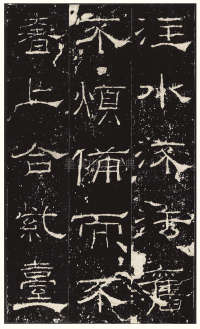 注水流法舊
不煩備而不
奢上合紫臺